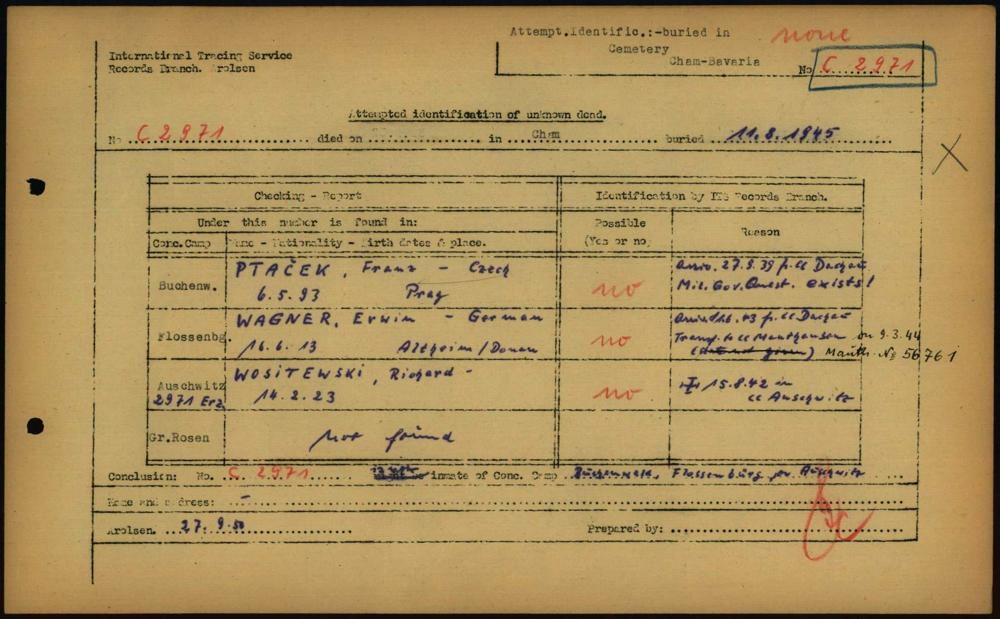 Attempt.Identific.:-buried in none
Cemetery
Cham-Bavaria
International Tracing Service
Records Branch. Arolsen
No C 2971
Attempted identification of unknown dead.
No C 2971 died on in Cham buried 11.8.1945
X
Checking - Report Identification by ITS Records Branch.
Under this number is found in: Possible (Yes or no) Reason
Conc.Camp Name - Nationality - Birth dates & place.
Buchenw. PTAČEK, Franz - Czech no arriv. 27.9.39 f. cc Dachau
6.5.93 Prag Mil. Gov. Quest. exists!
Flossenbg. WAGNER, Erwin - German no f. cc Dachau
16.6.13 Altheim/Donau Transf. to cc Mauthausen on 9.3.44
Mauth. No 56761
Auschwitz WOSITEWSKI, Richard - no 15.8.42 in
2971 Erz 14.2.23 cc Auschwitz
Gr.Rosen Not found
Conclusion: No. C 2971 inmate of Conc. Camp Buchenwald, Flossenbürg or Auschwitz
Name and address: -
Arolsen. 27.9.50 Prepared by: